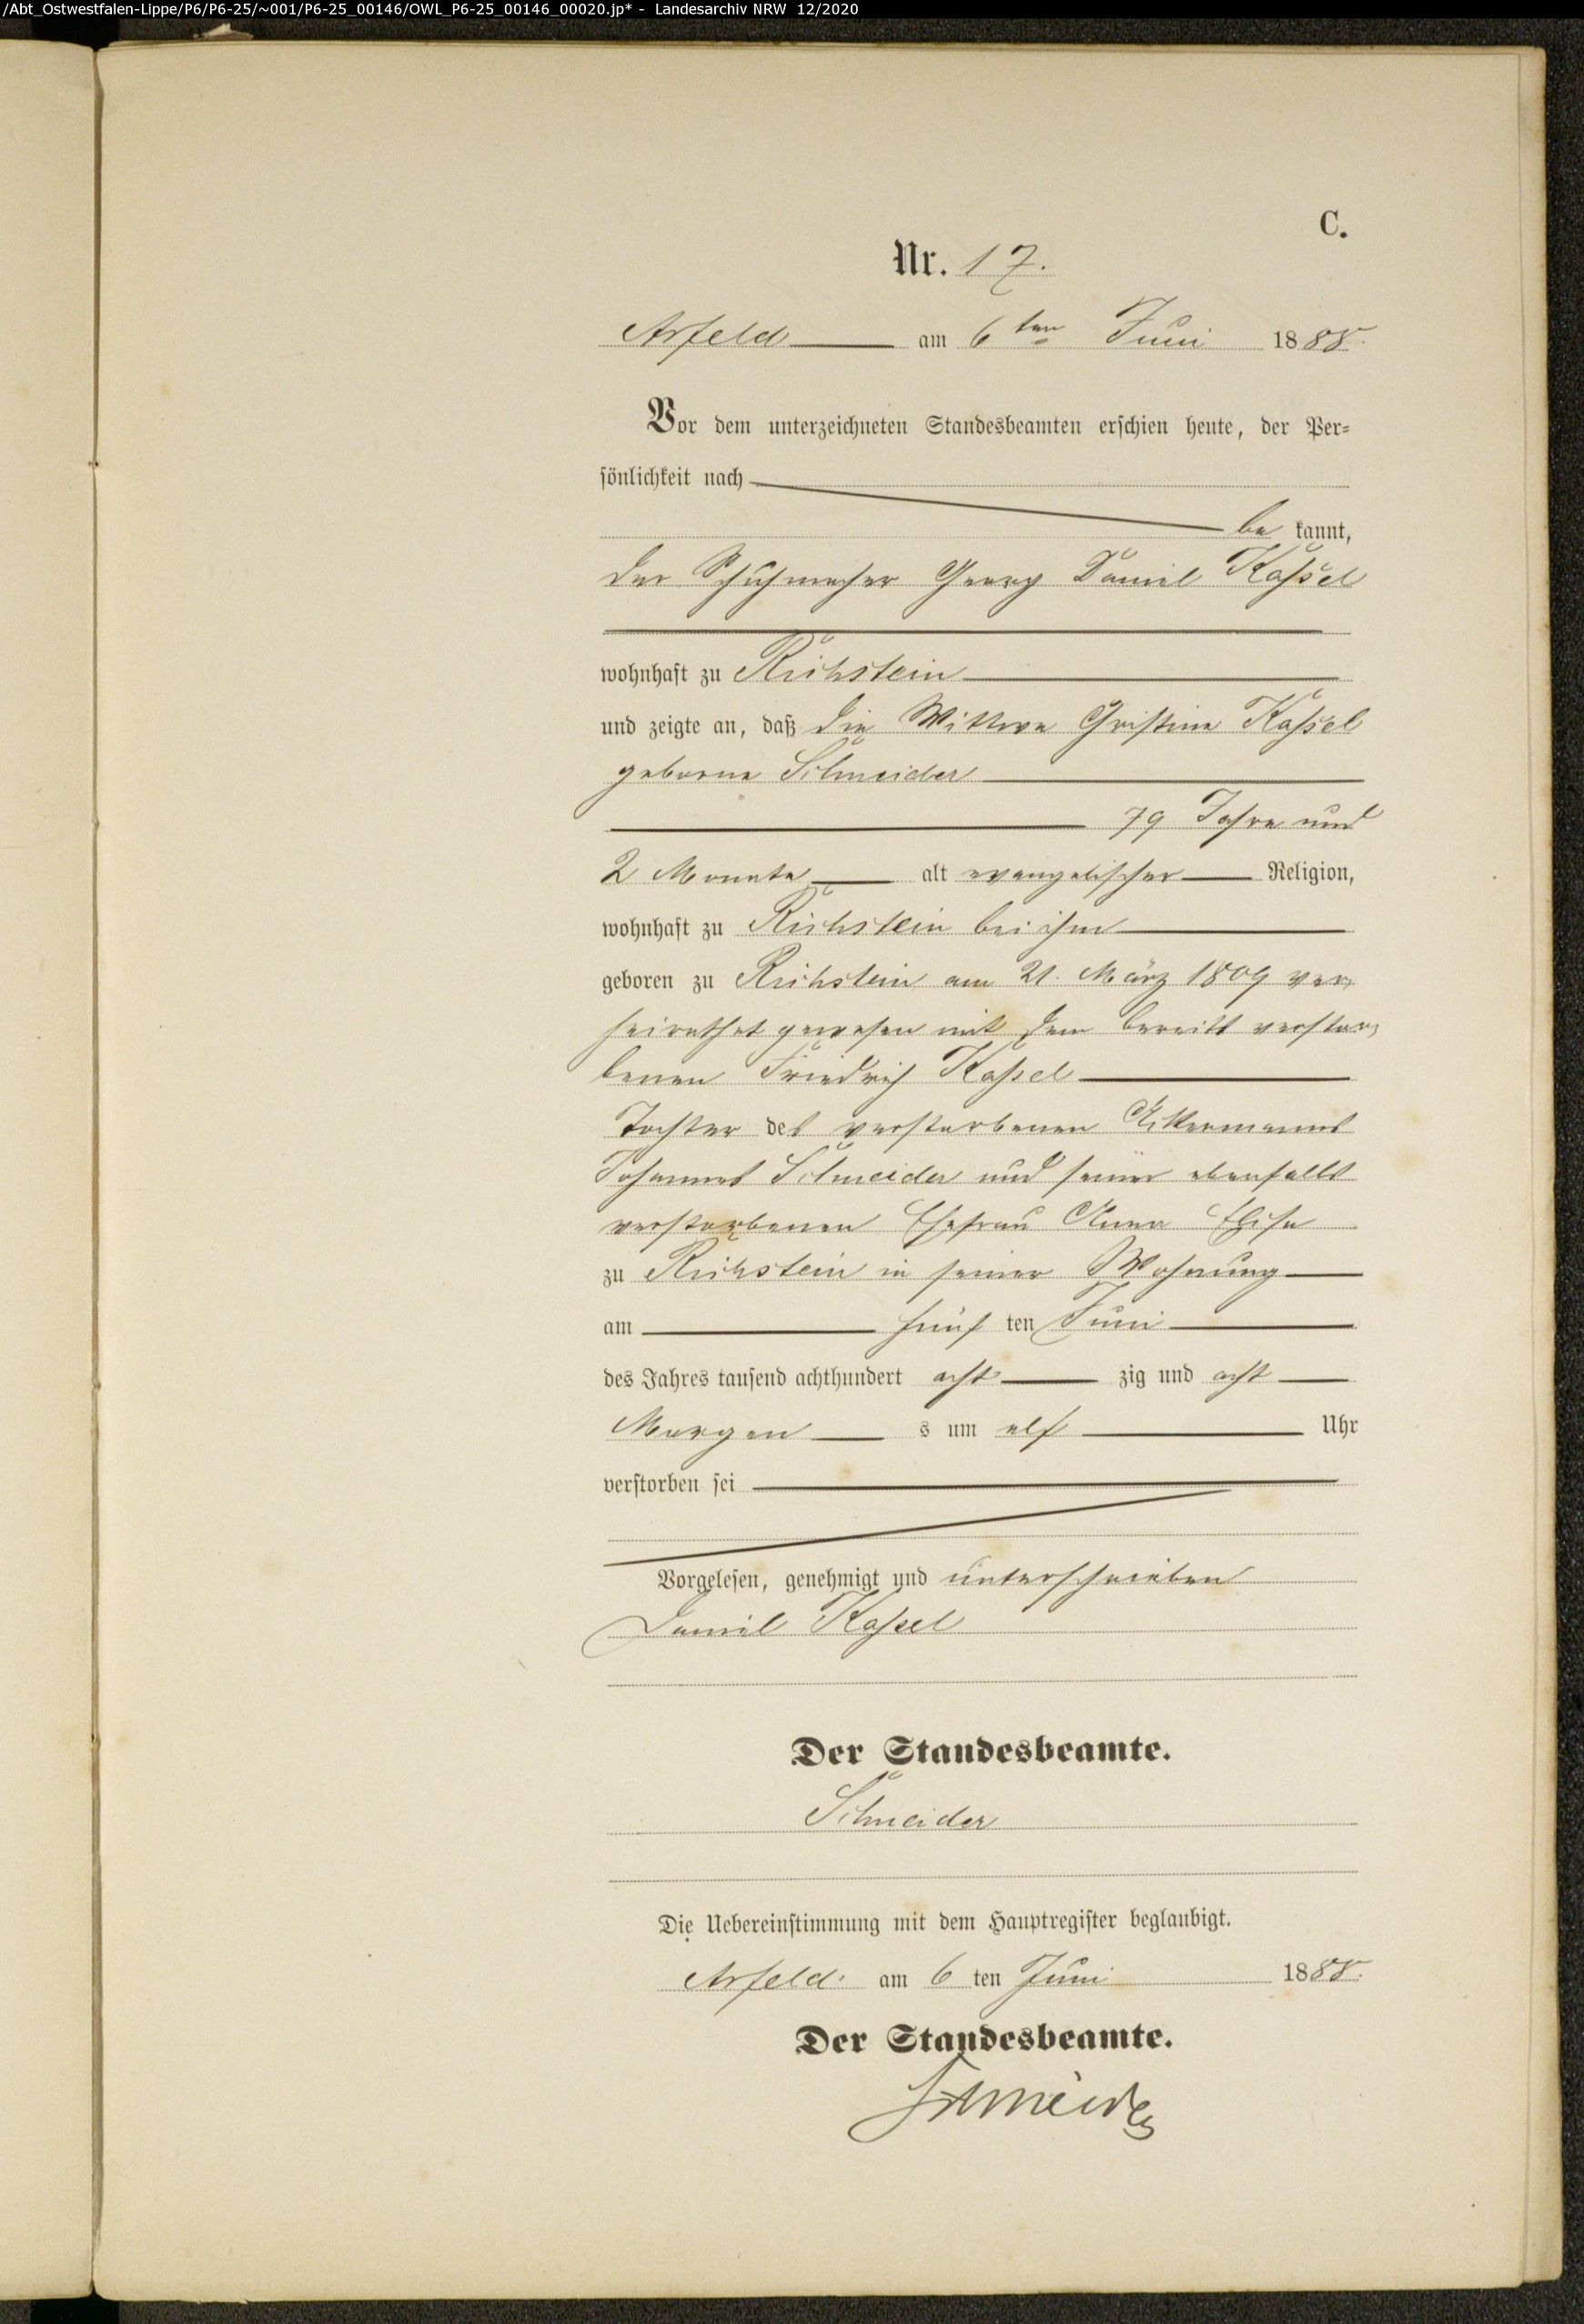 /Abt_Ostwestfalen-Lippe/P6/P6-25/~001/P6-25_00146/OWL_P6-25_00146_00020.jp* - Landesarchiv NRW 12/2020
C.
Nr. 17.
Arfeld am 6ten Juni 1888.
Vor dem unterzeichneten Standesbeamten erschien heute, der Per-
sönlichkeit nach
be kannt,
der Schuhmacher Georg Daniel Kaßel
wohnhaft zu Richstein
und zeigte an, daß die Wittwe Christine Kaßel
geborne Schneider
79 Jahre und
2 Monate alt evangelischer Religion,
wohnhaft zu Richstein bei ihm
geboren zu Richstein am 21. März 1809 ver-
heirathet gewesen mit dem bereits verstor-
benen Friedrich Kaßel
Tochter des verstorbenen Ackermanns
Johannes Schneider und seiner ebenfalls
verstorbenen Ehefrau Anna Elise
zu Richstein in seiner Wohnung
am fünf ten Juni
des Jahres tausend achthundert acht zig und acht
Morgen s um elf Uhr
verstorben sei
Vorgelesen, genehmigt und unterschrieben
Daniel Kaßel
Der Standesbeamte.
Schneider
Die Uebereinstimmung mit dem Hauptregister beglaubigt.
Arfeld. am 6 ten Juni 1888.
Der Standesbeamte.
Schneider